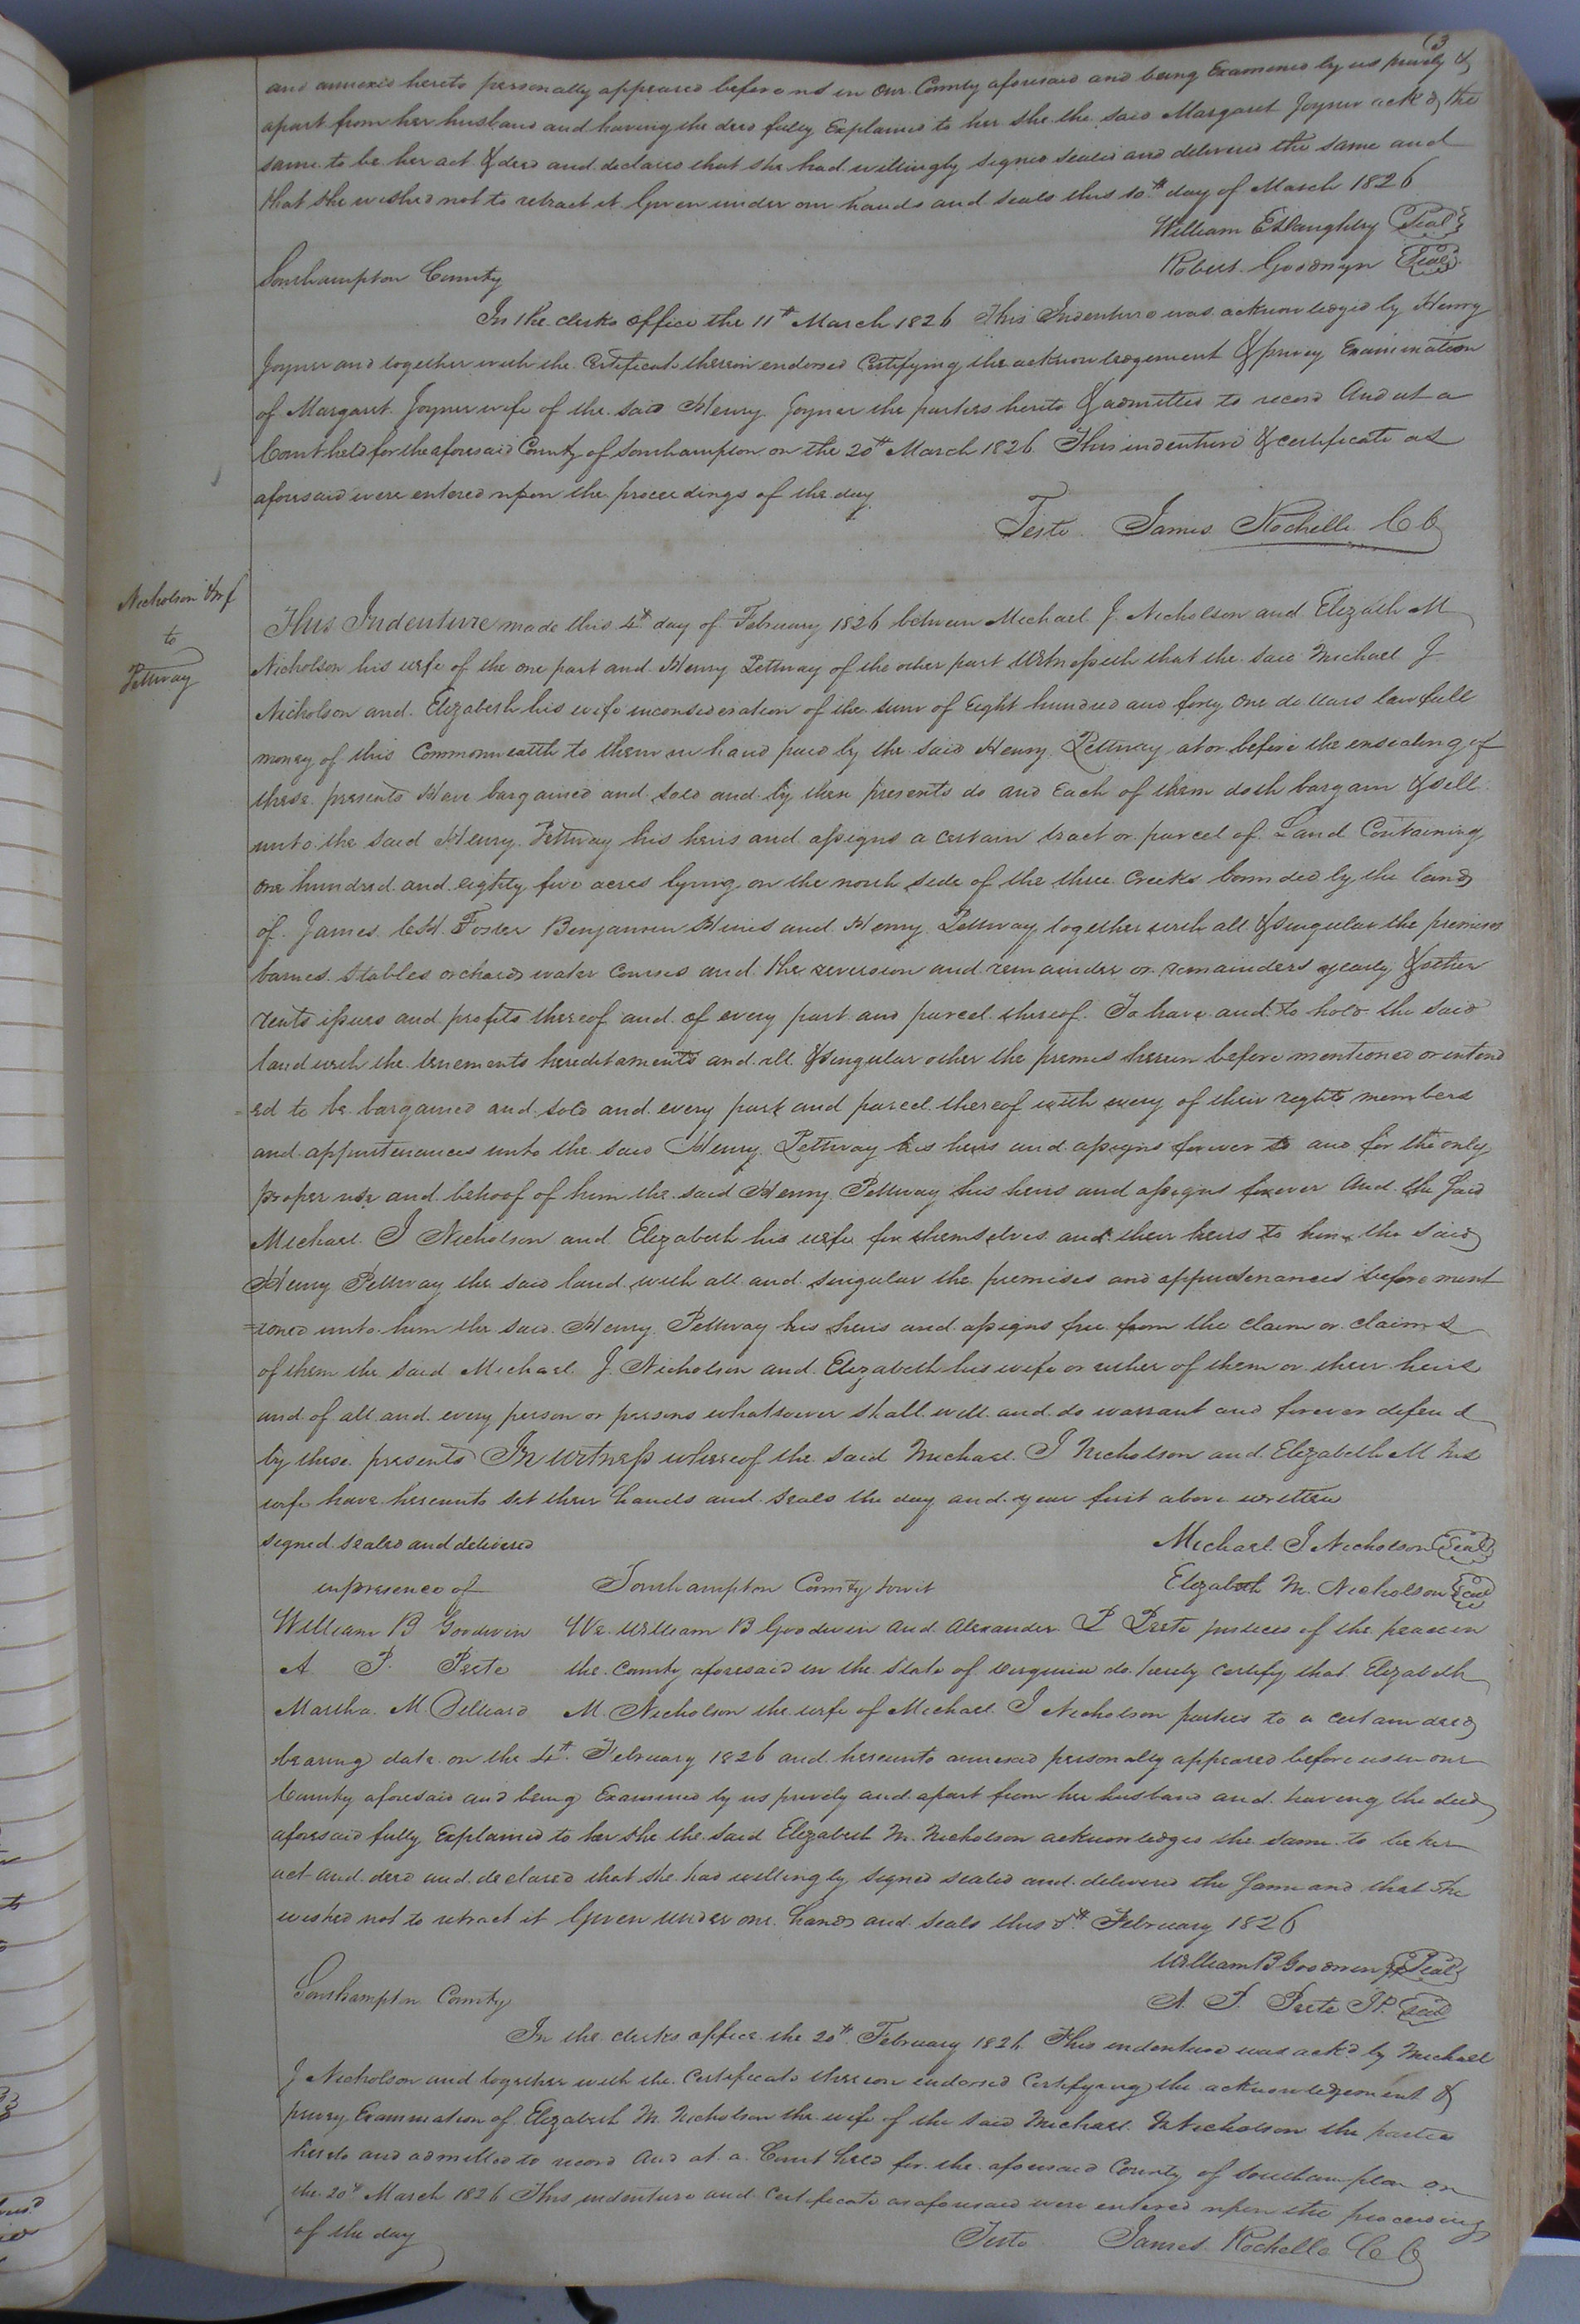 (3
and annexed hereto personally appeared before us in our County aforesaid and being Examined by us privily &
apart from her husband and having the deed fully Explained to her she the said Margaret Joyner ackd the
same to be her act & deed and declared that she had willingly signed sealed and delivered the same and
that she wished not to retract it Given under our hands and seals this 10th day of March 1826
William E Daughtry Seal
Robert Goodwyn Seal
Southampton County
In the clerks office the 11th March 1826 This Indenture was acknowledged by Henry
Joyner and together with the Certificate thereon endorsed Certifying the acknowledgement & privy Examination
of Margaret Joyner wife of the said Henry Joyner the parties hereto & admitted to record And at a
Court held for the aforesaid County of Southampton on the 20th March 1826 This indenture & certificate as
aforesaid were entered upon the proceedings of the day
Teste James Rochelle CC
Nicholson & wf
to
Pettway
This Indenture made this 4th day of February 1826 between Michael J. Nicholson and Elizabth M
Nicholson his wife of the one part and Henry Pettway of the other part Witnesseth that the said Michael J
Nicholson and Elizabeth his wife inconsideration of the sum of Eight hundred and forty one dollars lawfull
money of this Commonwealth to them in hand paid by the said Henry Pettway at or before the ensealing of
these presents Have bargained and sold and by these presents do and Each of them doth bargain & sell
unto the said Henry Pettway his heirs and assigns a certain tract or parcel of Land Containing
one hundred and eighty five acres lying on the north side of the three Creeks bounded by the land
of James Foster Benjamin and Henry Pettway together with all & singular the premises
barnes Stables orchards water Courses and the reversion and remainder or remainders yearly & other
rents issues and profits thereof and of every part and parcel thereof To have and to hold the said
land with the tenements hereditaments and all & singular other the premis herein before mentioned or intend
=ed to be bargained and sold and every part and parcel thereof with every of their rights members
and appurtenances unto the said Henry Pettway his heirs and assigns forever to and for the only
proper use and behoof of him the said Henry Pettway his heirs and assigns forever And the said
Michael J Nicholson and Elizabeth his wife for themselves and their heirs to him the said
Henry Pettway the said land with all and singular the premises and appurtenances before ment
=ioned unto him the said Henry Pettway his heirs and assigns free from the claim or claims
of them the said Michael J. Nicholson and Elizabeth his wife or either of them or their heirs
and of all and every person or persons whatsoever shall will and do warrant and forever defend
by these presents In witness whereof the said Michael J Nicholson and Elizabeth M his
wife have hereunto set their hands and seals the day and year first above written
signed sealed and delivered
Michael J Nicholson Seal
in presence of
Southampton County towit
Elizabeth M. Nicholson Seal
William B Goodwin We William B Goodwin and Alexander P Peete justices of the peace in
A P. Peete the County aforesaid in the State of Virginia do hereby certify that Elizabeth
Martha M. M. Nicholson the wife of Michael J Nicholson parties to a certain deed
bearing date on the 4th February 1826 and hereunto annexed personally appeared before us in our
County aforesaid and being Examined by us privily and apart from her husband and having the deed
aforesaid fully Explained to her she the said Elizabeth M. Nicholson acknowledges the same to be her
act and deed and declared that she had willingly signed sealed and delivered the same and that she
wished not to retract it Given under our hands and seals this February 1826
William B Goodwin Seal
A. P. Peete JP. Seal
Southampton County
In the clerks office the 20th February 1826 This indenture was ackd by Michael
J Nicholson and together with the Certificate thereon endorsed Certifying the acknowledgement &
privy Examination of Elizabeth M. Nicholson the wife of the said Michael Nicholson the parties
hereto and admitted to record And at a Court held for the aforesaid County of Southampton on
the 20th March 1826 This indenture and Certificate as aforesaid were entered upon the proceeding
of the day
Teste James Rochelle CC